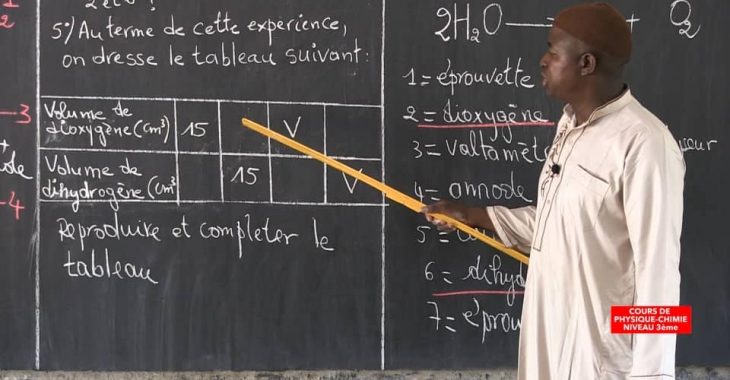 5°/ Au terme de cette experience,
on dresse le tableau suivant:
Volume de
dioxygène (cm³) 15 V
Volume de
dihydrogène (cm³ 15 V
Reproduire et completer le
tableau
-3
-4
2H₂O → + O₂
1 = éprouvette
2 = dioxygène
3 = voltamètre
4 = annode
5 =
6 = dihyd
7 = éprou
COURS DE
PHYSIQUE-CHIMIE
NIVEAU 3ème